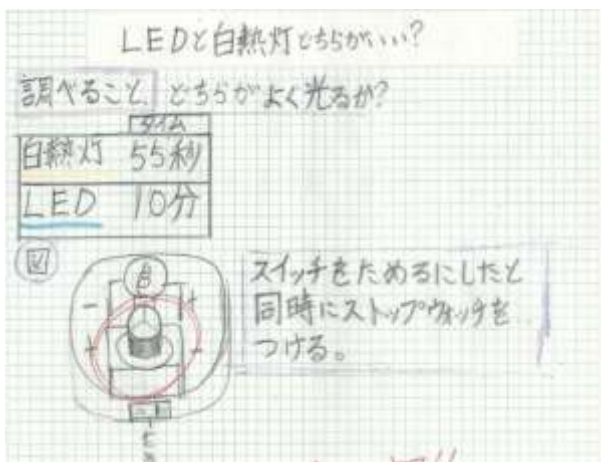 LEDと白熱灯どちらがいい?
調べること どちらがよく光るか?
タイム
白熱灯 55秒
LED 10分
図
スイッチをためるにしたと
同時にストップウォッチを
つける。
- +
+ -